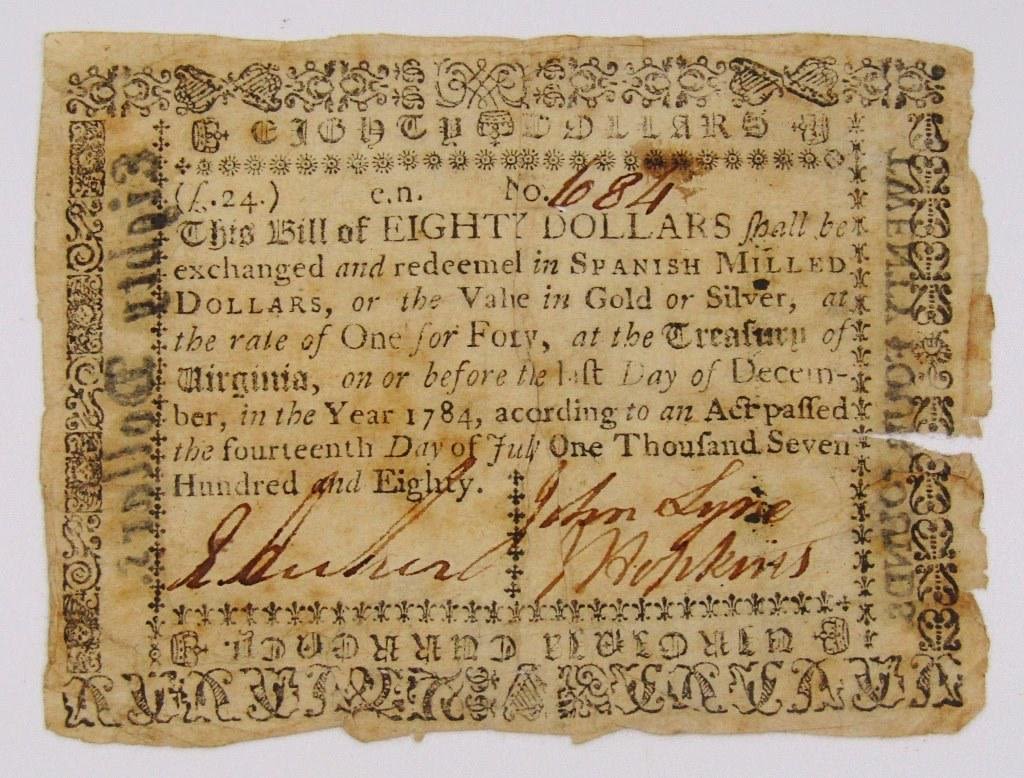 EIGHTY DOLLARS
(£.24.) e.n. No. 684
This Bill of EIGHTY DOLLARS shall be
exchanged and redeemel in SPANISH MILLED
DOLLARS, or the Valie in Gold or Silver, at
the rate of One for Foty, at the Treasury of
Virginia, on or before the last Day of Decem-
ber, in the Year 1784, acording to an Act passed
the fourteenth Day of July One Thousand Seven
Hundred and Eighty.
John Lyne
J Hopkins
VIRGINIA CURRENCY.
Eighty Dollars.
TWENTY FOUR POUNDS